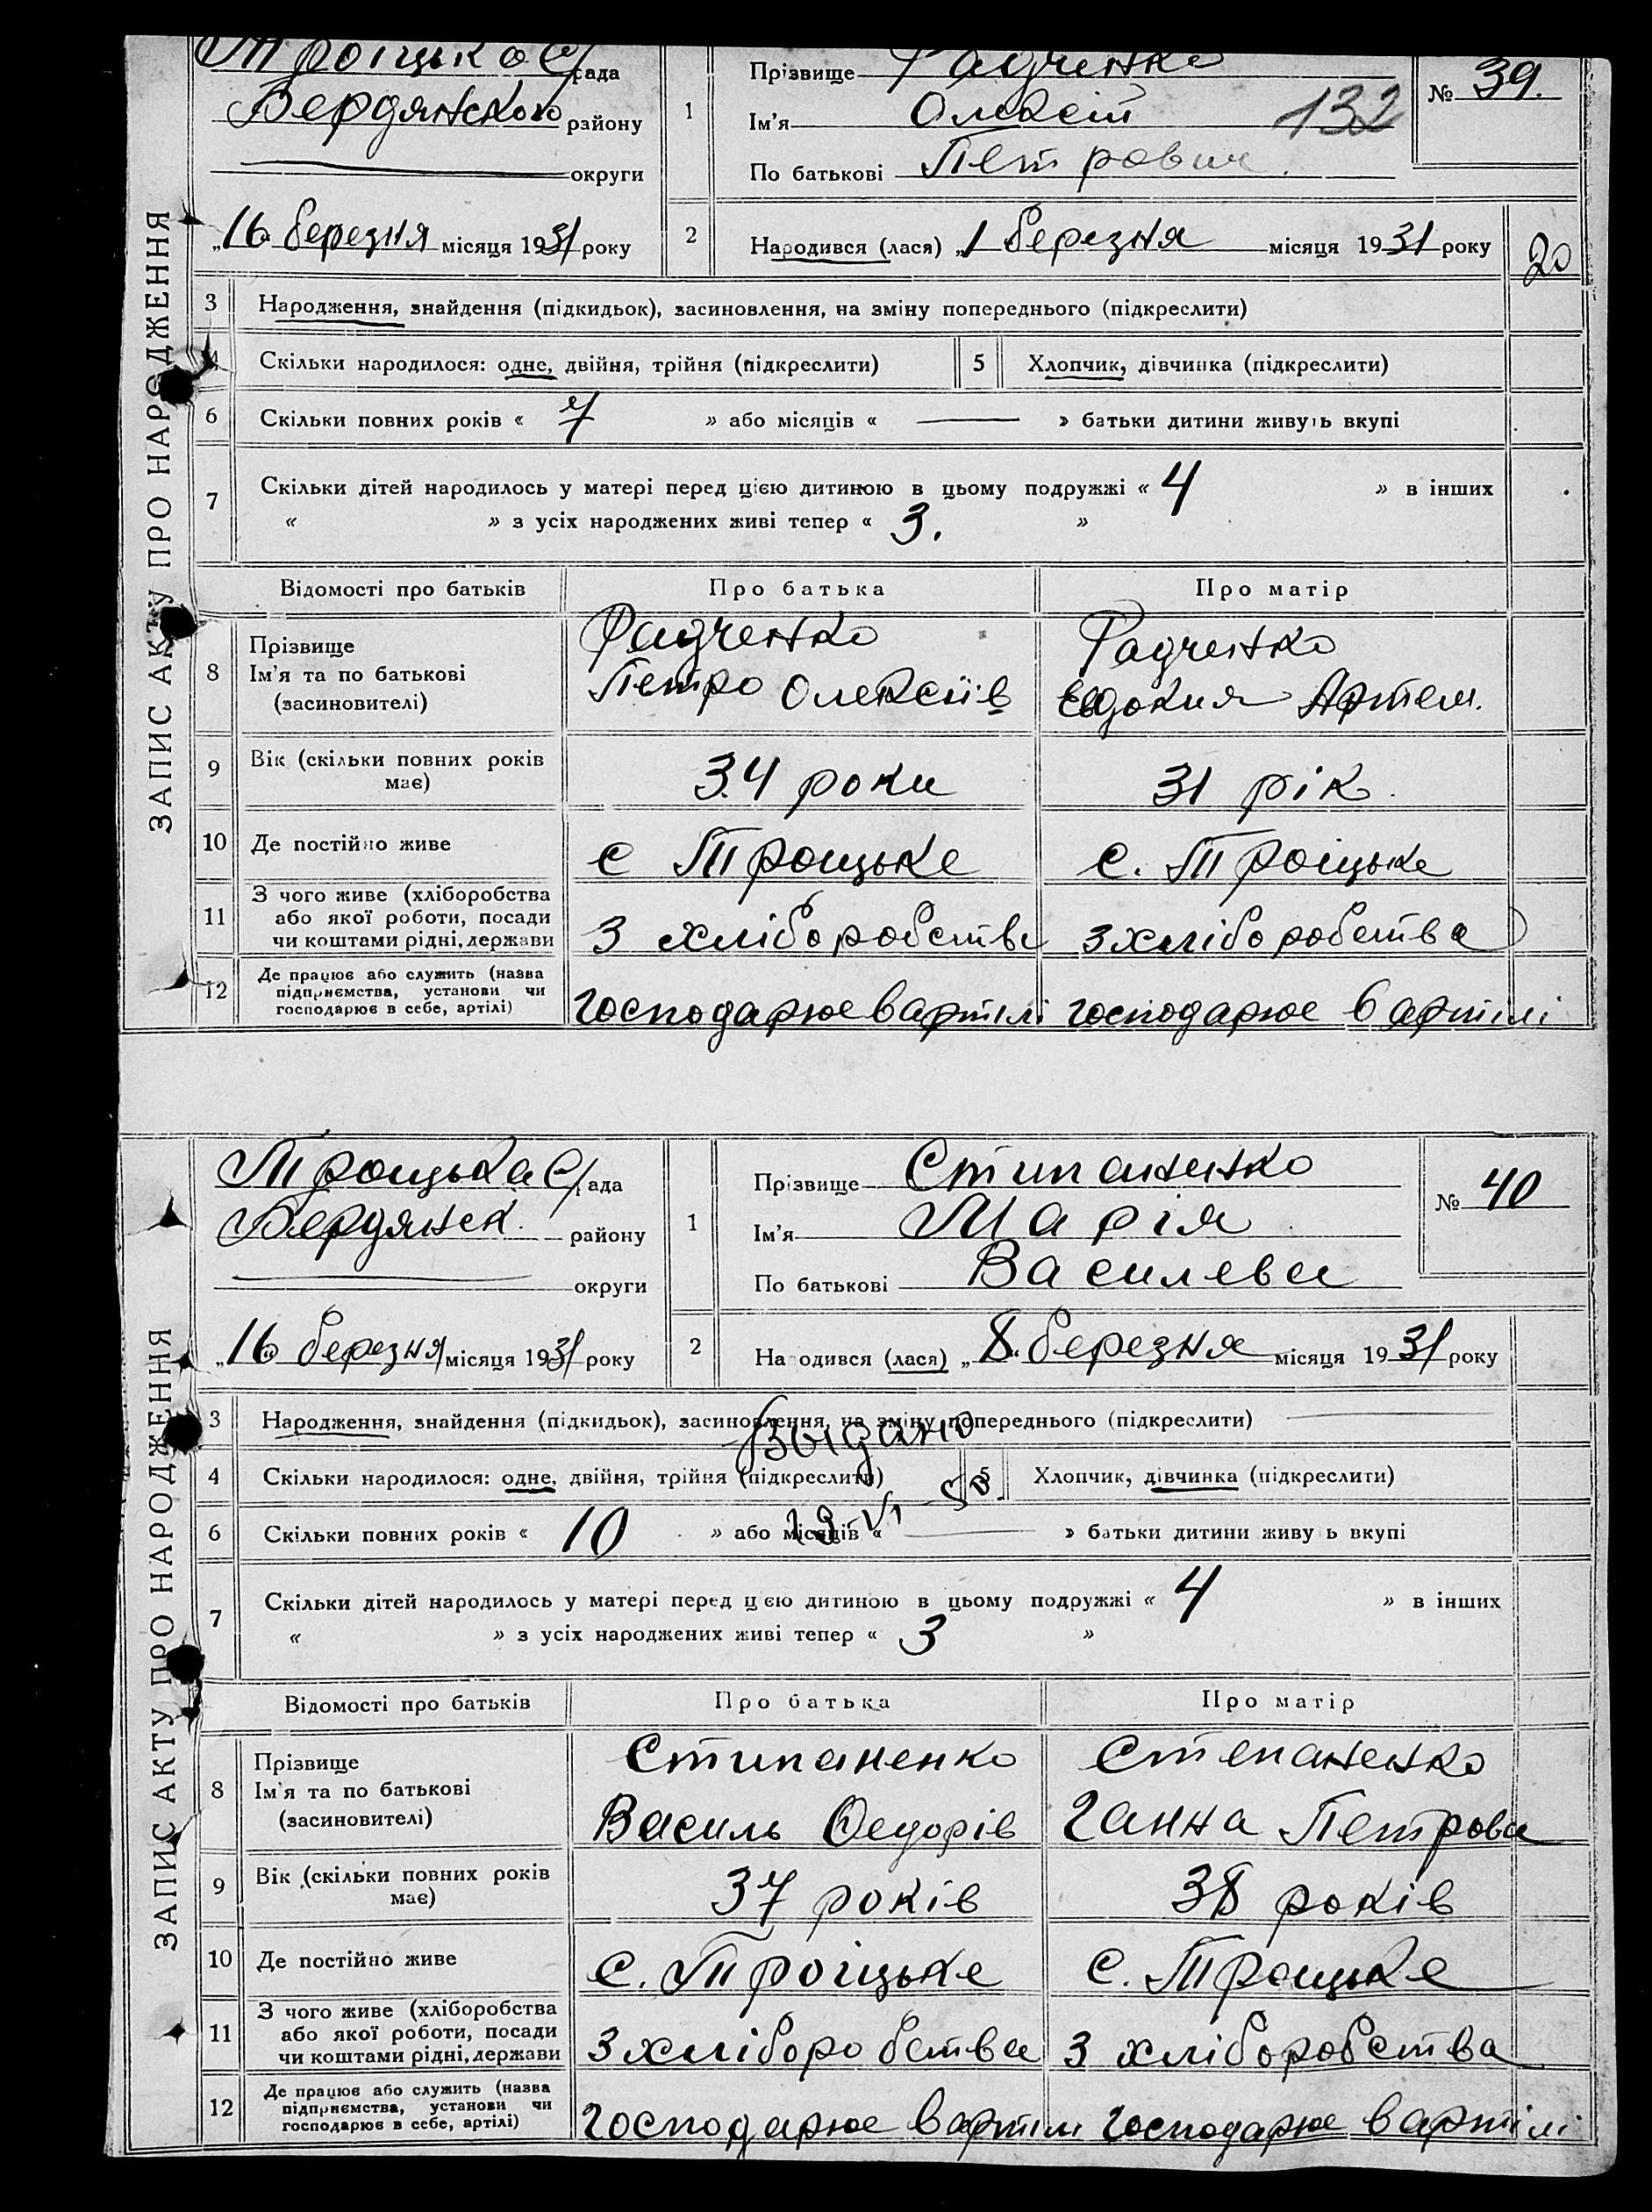 Троіцька С/рада
Бердянского району
округи
„16" березня місяця 1931 року
1
Прізвище Радченко
Ім'я Олексій
132
По батькові Петрович
№ 39.
2
Народився (лася) „1 березня місяця 1931 року
20
ЗАПИС АКТУ ПРО НАРОДЖЕННЯ
3 Народження, знайдення (підкидьок), засиновлення, на зміну попереднього (підкреслити)
4 Скільки народилося: одне, двійня, трійня (підкреслити) 5 Хлопчик, дівчинка (підкреслити)
6 Скільки повних років « 7 » або місяців « — » батьки дитини живуть вкупі
7 Скільки дітей народилось у матері перед цією дитиною в цьому подружжі « 4 » в інших
« » з усіх народжених живі тепер « 3. »
Відомості про батьків Про батька Про матір
8 Прізвище
Ім'я та по батькові
(засиновителі)
Радченко
Петро Олексіїв
Радченко
Евдокия Артем.
9 Вік (скільки повних років
має)
34 роки
31 рік.
10 Де постійно живе
с Троіцьке
с. Троіцьке
11 З чого живе (хліборобства
або якої роботи, посади
чи коштами рідні, держави
З хліборобства
З хліборобства
12 Де працює або служить (назва
підприємства, установи чи
господарює в себе, артілі)
господарює в артілі
господарює в артілі
Троіцька С/рада
Бердянск. району
округи
„16" березня місяця 1931 року
1
Прізвище Стипаненко
Ім'я Марія
По батькові Василева
№ 40
2
Народився (лася) „8. березня місяця 1931 року
ЗАПИС АКТУ ПРО НАРОДЖЕННЯ
3 Народження, знайдення (підкидьок), засиновлення, на зміну попереднього (підкреслити)
Выдано
4 Скільки народилося: одне, двійня, трійня (підкреслити) 5 Хлопчик, дівчинка (підкреслити)
6 Скільки повних років « 10 » або місяців « — » батьки дитини живуть вкупі
7 Скільки дітей народилось у матері перед цією дитиною в цьому подружжі « 4 » в інших
« » з усіх народжених живі тепер « 3 »
Відомості про батьків Про батька Про матір
8 Прізвище
Ім'я та по батькові
(засиновителі)
Стипаненко
Василь Федорів
Степаненко
Ганна Петрова
9 Вік (скільки повних років
має)
37 років
38 років
10 Де постійно живе
с. Троіцьке
с. Троіцьке
11 З чого живе (хліборобства
або якої роботи, посади
чи коштами рідні, держави
З хліборобства
З хліборобства
12 Де працює або служить (назва
підприємства, установи чи
господарює в себе, артілі)
господарює в артілі
господарює в артілі